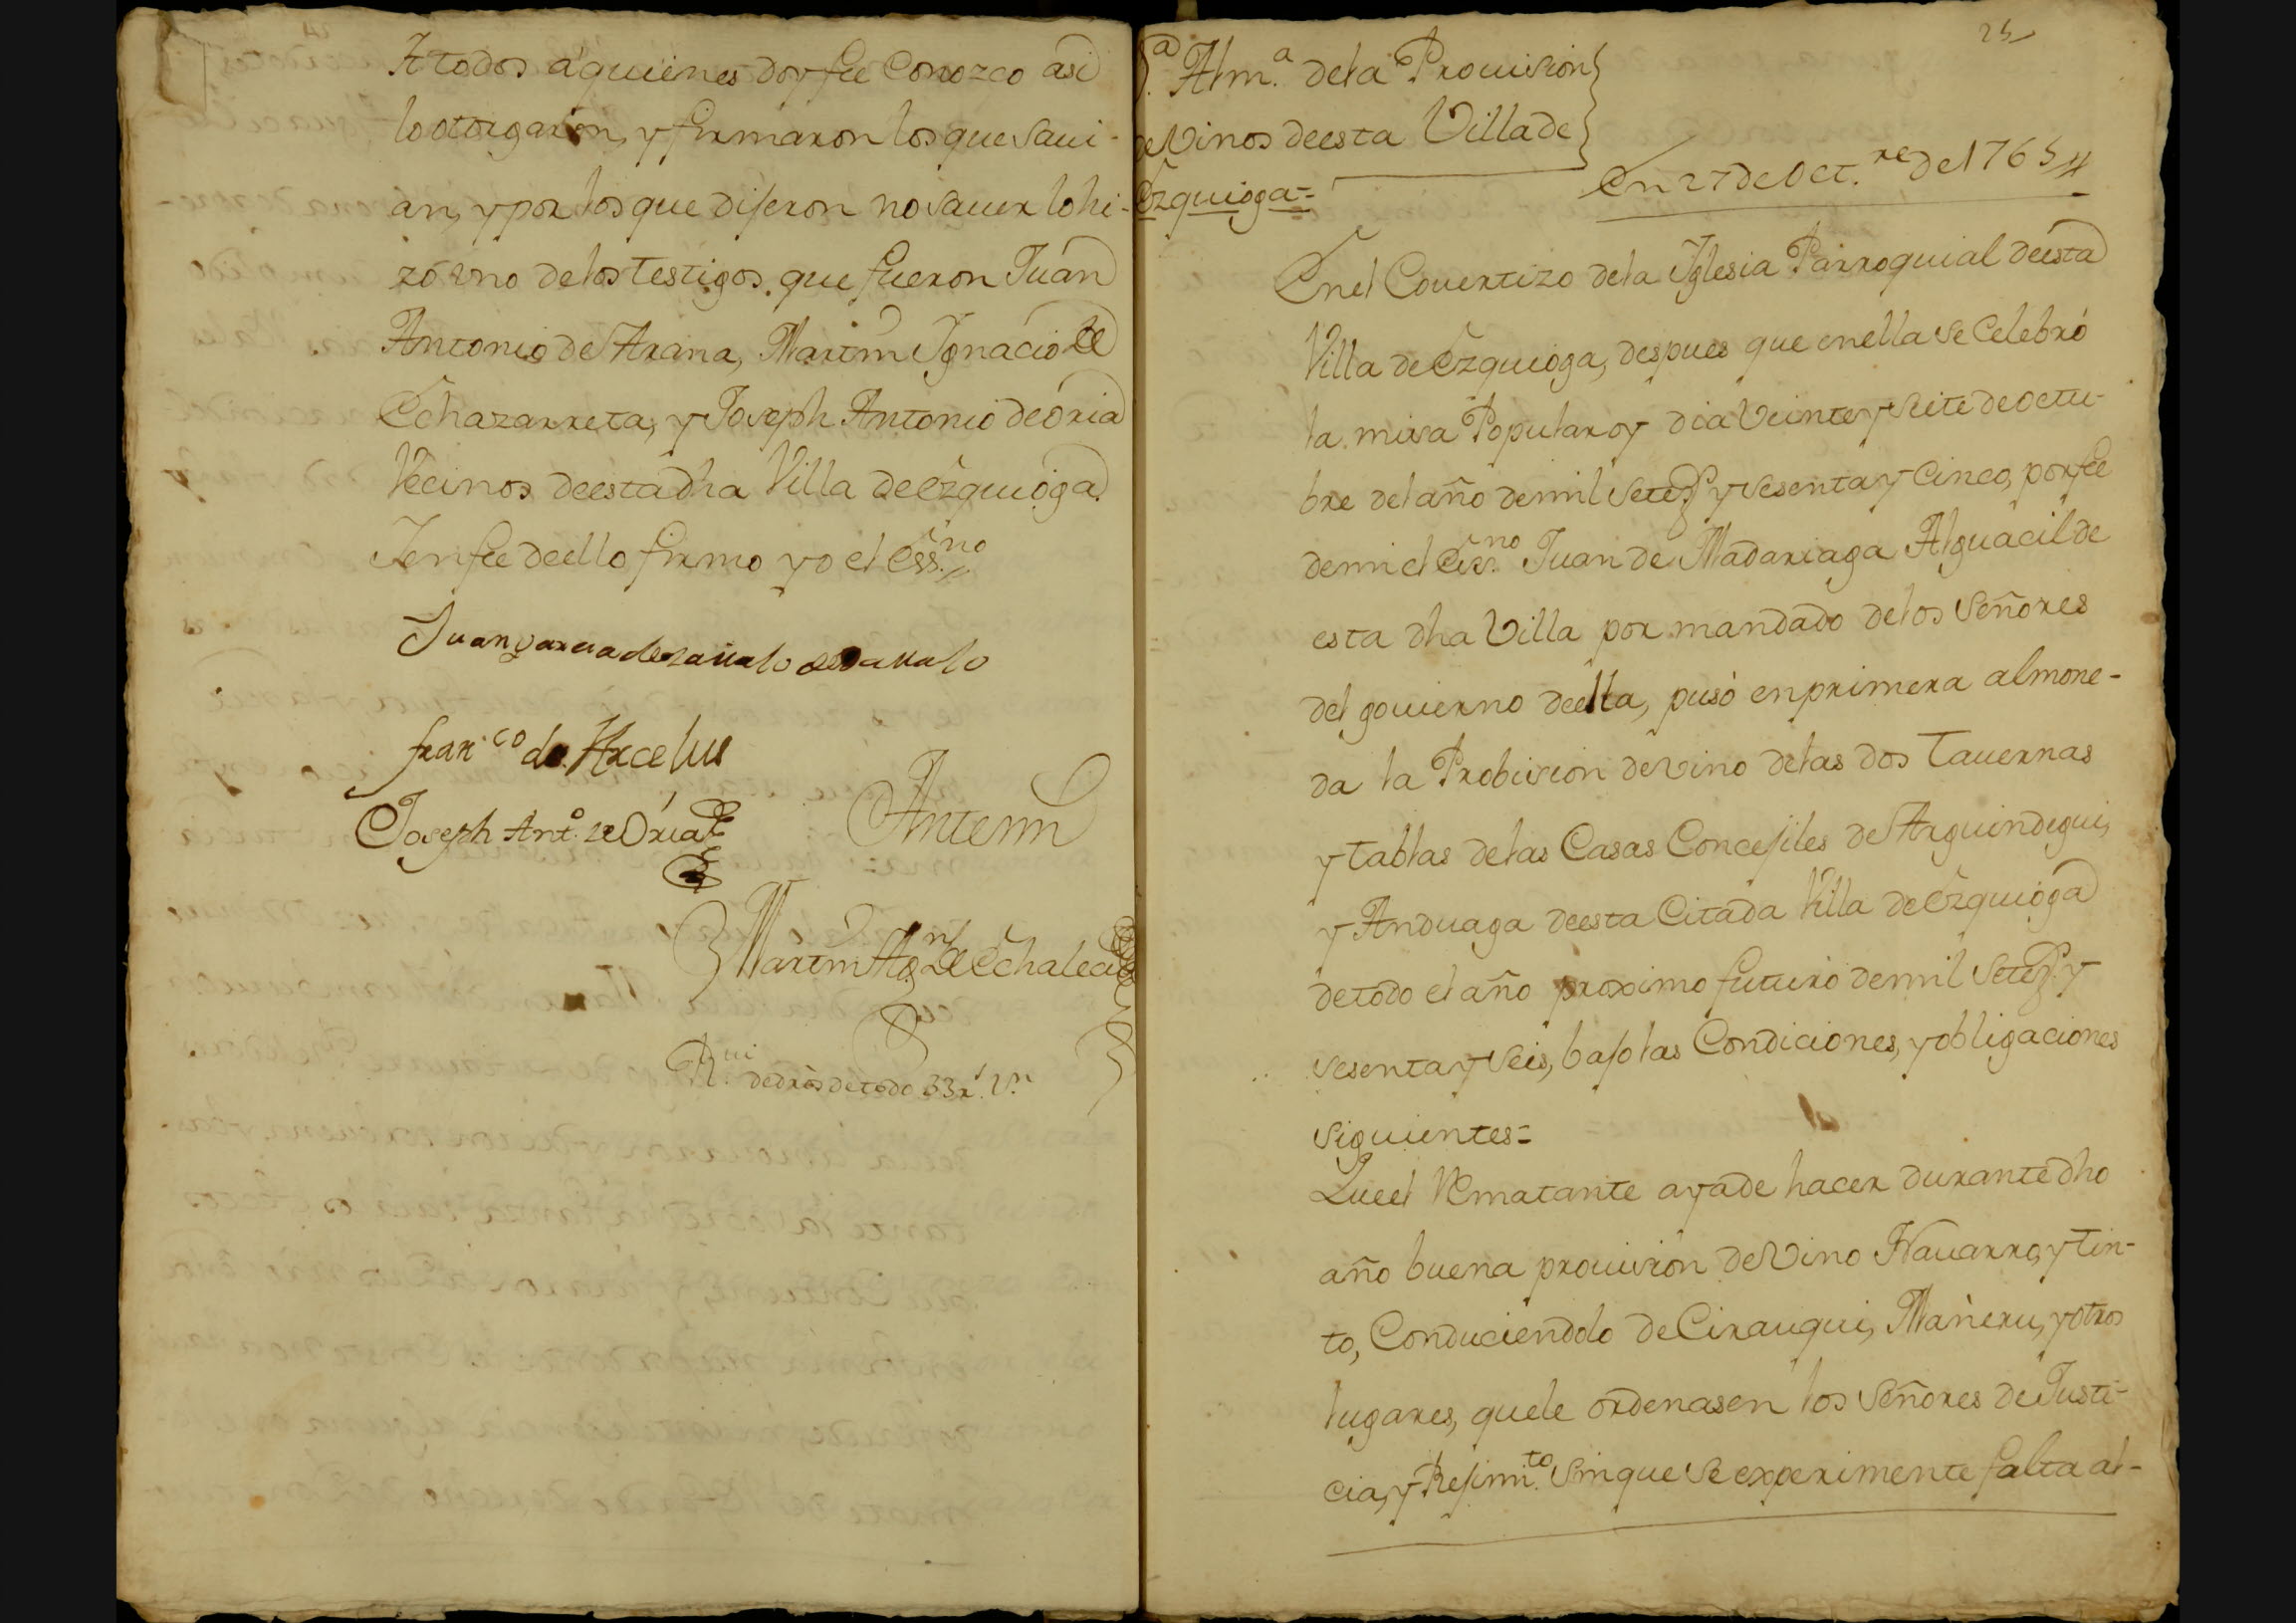 A todos á quienes doy fee Conozco asi
lo otorgaron, y firmaron los que savi-
an, y por los que dijeron no saver lo hi-
zó uno de los testigos, que fueron Juan
Antonio de Arana, Martin Ignacio de
Echazarreta, y Joseph Antonio de Oria
Vecinos de esta dha Villa de Ezquioga.
Y en fee de ello firmo yo el Essno
Juan garcia de zavalo
franco de Arcelus
Joseph Anto. de Oria
Antemi
Martin Agn. de Echalecu
R.vi de dros de todo 33 rs. Vn
25
1.a Alm.a de la Provision
de Vinos de esta Villa de
Ezquioga=
En 27 de Oct.re de 1765
En el Covertizo de la Iglesia Parroquial de esta
Villa de Ezquioga, despues que en ella se Celebró
la misa Popular oy dia Veinte y siete de octu-
bre del año de mil setez.s y sesenta y Cinco, por fee
de mi el Es.no Juan de Madariaga Alguacil de
esta dha Villa por mandado de los Señores
del govierno de ella, pusó en primera almone-
da la Probision de vino de las dos Tavernas
y tablas de las Casas Concejiles de Arguindegui,
y Anduaga de esta Citada Villa de Ezquioga
de todo el año proximo futuro de mil Setez.s y
sesenta y seis, bajo las Condiciones, y obligaciones
siguientes=
Que el Rematante aya de hacer durante dho
año buena provision de Vino Navarro, y tin-
to, Conduciendolo de Cirauqui, Mañeru, y otros
lugares, que le ordenasen los Señores de Justi-
cia, y Rejim.to sin que se experimente falta al-